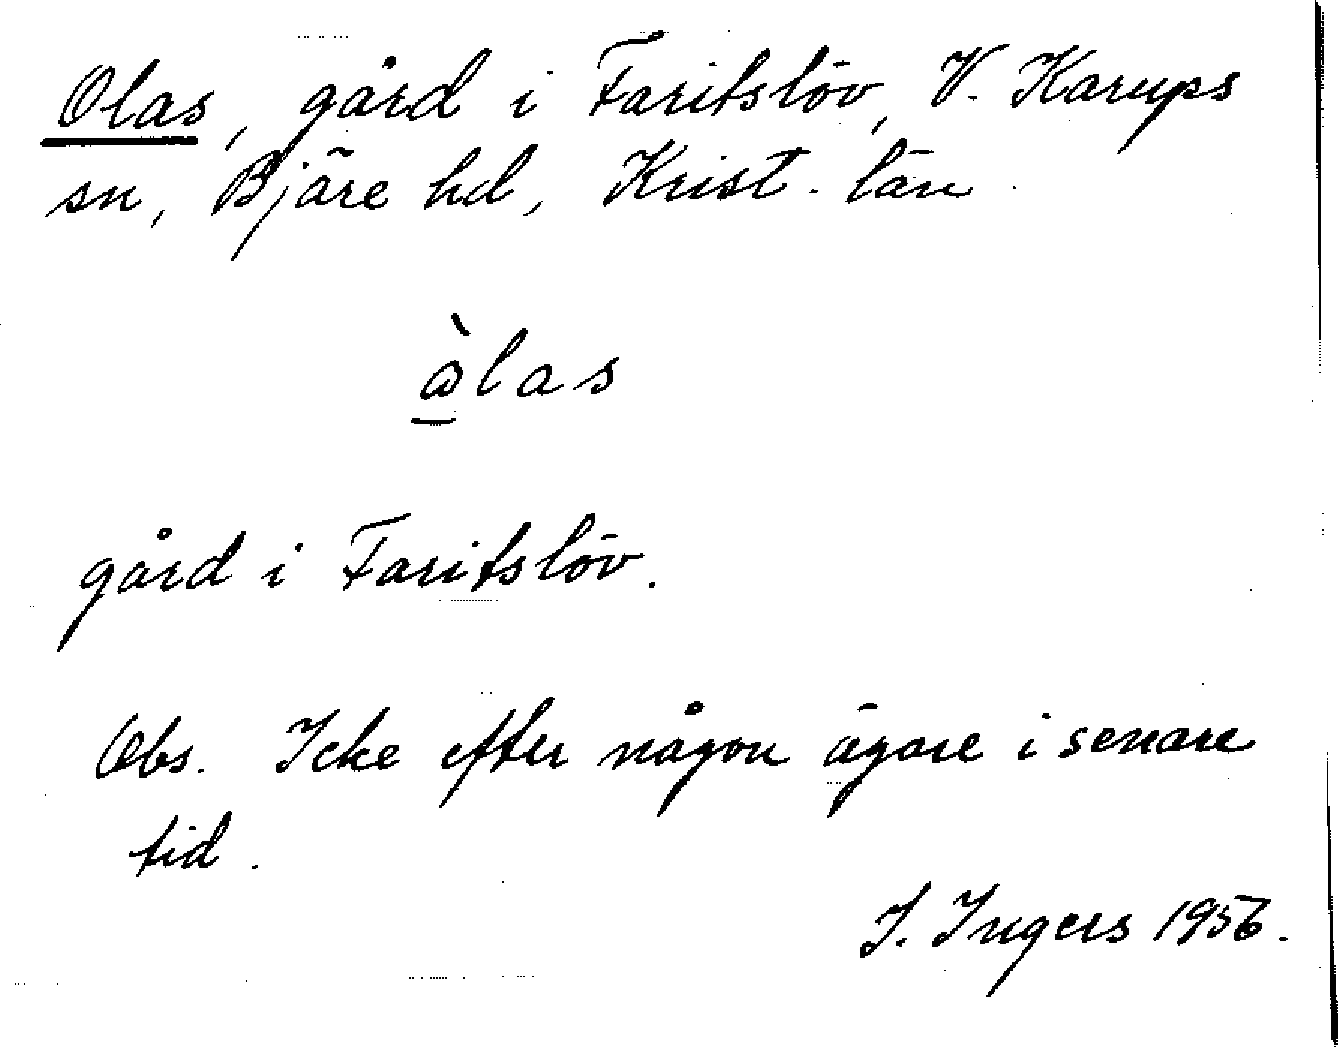 Olas, gård i Faritslöv, V. Karups
sn, Bjäre hd, Krist. län
òlas
gård i Faritslöv.
Obs. Icke efter någon ägare i senare
tid.
I. Ingers 1956.